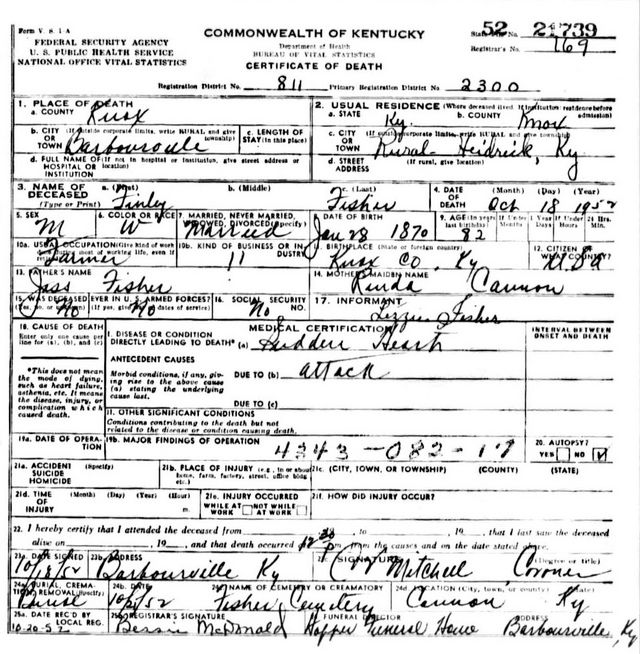 Form V. S. 1-A
FEDERAL SECURITY AGENCY
U. S. PUBLIC HEALTH SERVICE
NATIONAL OFFICE VITAL STATISTICS
COMMONWEALTH OF KENTUCKY
Department of Health
BUREAU OF VITAL STATISTICS
CERTIFICATE OF DEATH
52 21739
Registrar's No. 169
Registration District No. 811 Primary Registration District No. 2300
1. PLACE OF DEATH
a. COUNTY Knox
2. USUAL RESIDENCE (Where deceased lived. If institution: residence before admission)
a. STATE Ky. b. COUNTY Knox
b. CITY (If outside corporate limits, write RURAL and give township) OR TOWN Barboursville
c. LENGTH OF STAY (in this place)
c. CITY (If outside corporate limits, write RURAL and give township) OR TOWN Rural Heidrick, Ky
d. FULL NAME OF (If not in hospital or institution, give street address or location) HOSPITAL OR INSTITUTION
d. STREET ADDRESS (If rural, give location)
3. NAME OF DECEASED (Type or Print) a. (First) Finley b. (Middle) c. (Last) Fisher
4. DATE OF DEATH (Month) (Day) (Year) Oct 18 1952
5. SEX M
6. COLOR OR RACE W
7. MARRIED, NEVER MARRIED, WIDOWED, DIVORCED (Specify) Married
8. DATE OF BIRTH Jan 28 1870
9. AGE (In years last birthday) 82 If Under 1 Year If Under 24 Hrs.
10a. USUAL OCCUPATION (Give kind of work done during most of working life, even if retired) Farmer
10b. KIND OF BUSINESS OR INDUSTRY 11
11. BIRTHPLACE (State or foreign country) Knox Co, Ky
12. CITIZEN OF WHAT COUNTRY? USA
13. FATHER'S NAME Jass Fisher
14. MOTHER'S MAIDEN NAME Rinda Cannon
15. WAS DECEASED EVER IN U. S. ARMED FORCES? (Yes, no, or unknown) (If yes, give war or dates of service) No No
16. SOCIAL SECURITY NO. No
17. INFORMANT Lizzie Fisher
18. CAUSE OF DEATH
Enter only one cause per line for (a), (b), and (c)
MEDICAL CERTIFICATION
INTERVAL BETWEEN ONSET AND DEATH
I. DISEASE OR CONDITION DIRECTLY LEADING TO DEATH* (a) Sudden Heart
ANTECEDENT CAUSES
Morbid conditions, if any, giving rise to the above cause (a) stating the underlying cause last.
DUE TO (b) attack
DUE TO (c)
*This does not mean the mode of dying, such as heart failure, asthenia, etc. It means the disease, injury, or complication which caused death.
II. OTHER SIGNIFICANT CONDITIONS
Conditions contributing to the death but not related to the disease or condition causing death.
19a. DATE OF OPERATION
19b. MAJOR FINDINGS OF OPERATION
4343-082-17
20. AUTOPSY? YES NO
21a. ACCIDENT SUICIDE HOMICIDE (Specify)
21b. PLACE OF INJURY (e.g., in or about home, farm, factory, street, office bldg., etc.)
21c. (CITY, TOWN, OR TOWNSHIP) (COUNTY) (STATE)
21d. TIME OF INJURY (Month) (Day) (Year) (Hour) m.
21e. INJURY OCCURRED WHILE AT WORK NOT WHILE AT WORK
21f. HOW DID INJURY OCCUR?
22. I hereby certify that I attended the deceased from , 19 to , 19 , that I last saw the deceased
alive on , 19 , and that death occurred 12 30 P m., from the causes and on the date stated above.
23a. DATE SIGNED 10/18/52
23b. ADDRESS Barbourville Ky
SIGNATURE Mitchell Coroner (Degree or title)
24a. BURIAL, CREMATION, REMOVAL (Specify) Burial
10/21/52
NAME OF CEMETERY OR CREMATORY Fisher Cemetery
24d. LOCATION (City, town, or county) (State) Cannon Ky
25a. DATE REC'D BY LOCAL REG. 10-20-52
REGISTRAR'S SIGNATURE Bessie McDonald
FUNERAL DIRECTOR Hopper Funeral Home
ADDRESS Barbourville, Ky